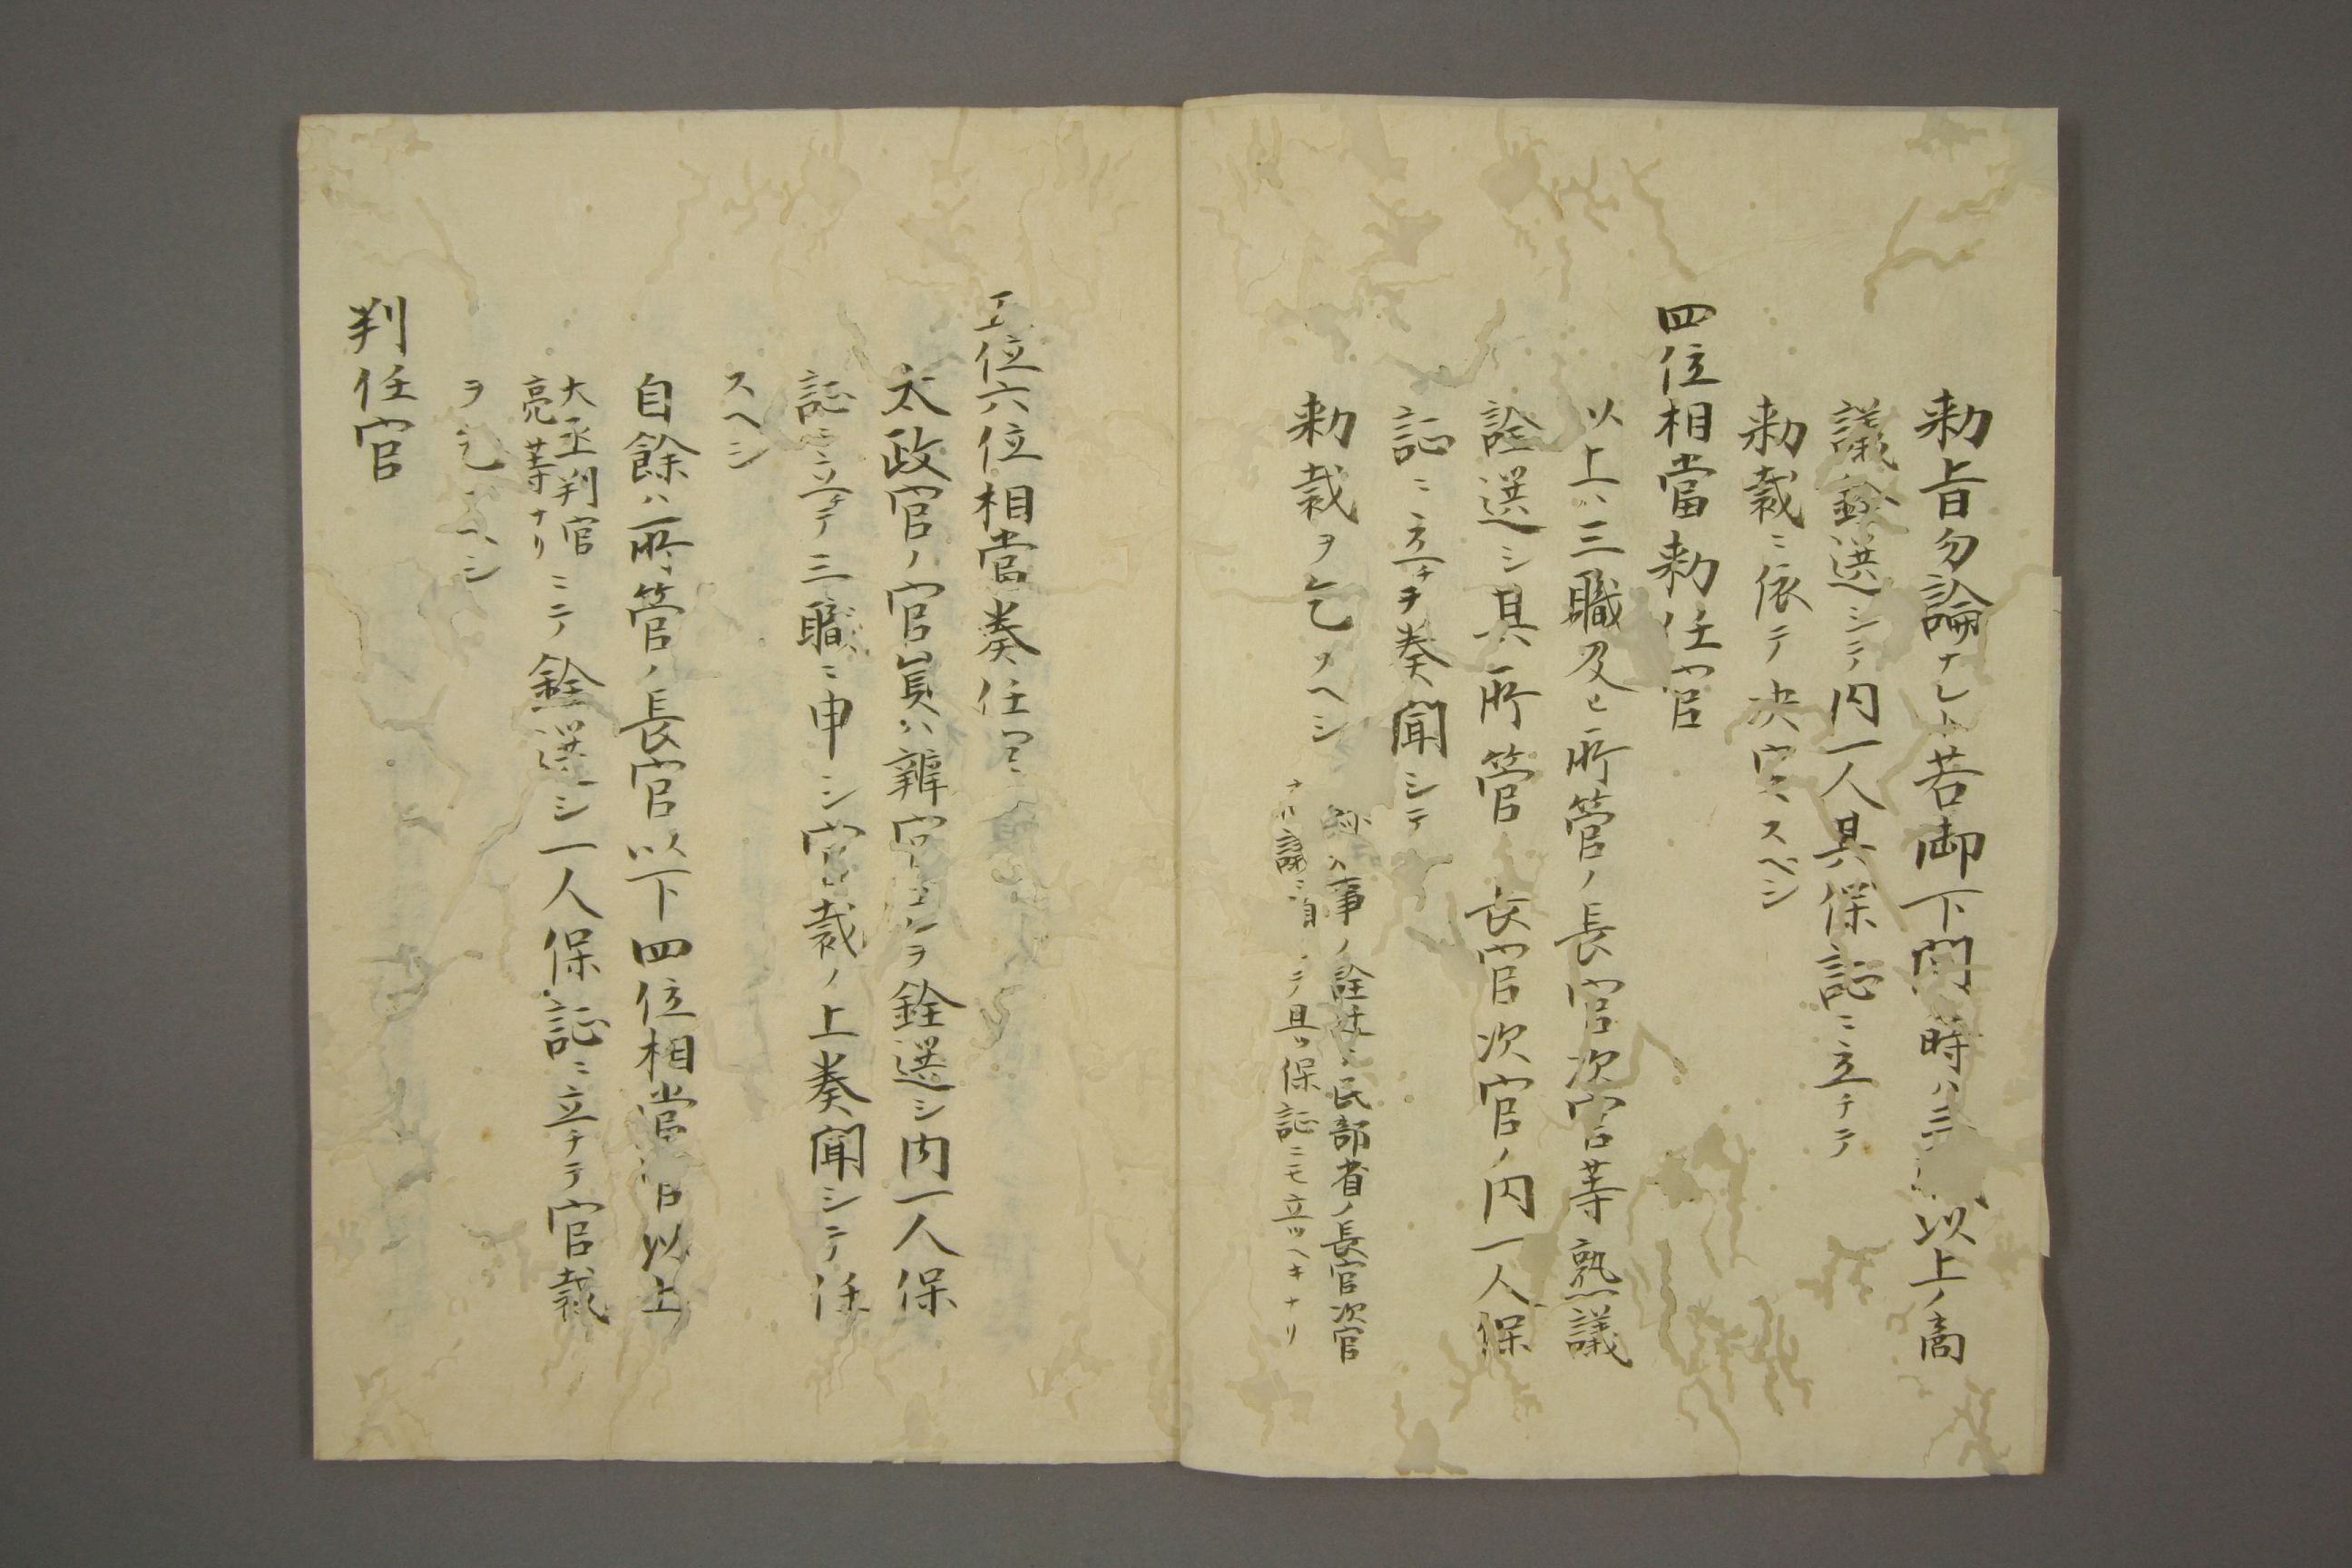 勅旨勿論ナレト若御下問時ハ三以上ノ商
議銓選シテ内一人其保証ニ立チテ
勅裁ニ依テ決定スベシ
四位相當勅任官
以上ハ三職及ヒ所管ノ長官次官等熟議
詮選シ其所管長官次官ノ内一人保
証ニ立チテ奏聞シテ
勅裁ヲ乞フヘシ
事ノ詮ハ民部省ノ長官次官
ナル議ニ自ラ且ツ保証ニモ立ツヘキナリ
五位六位相當奏任官
太政官ノ官員ハ辨官コレヲ銓選シ内一人保
証ニ立チテ三職ニ申シ官裁ノ上奏聞シテ任
スヘシ
自餘ハ所管ノ長官以下四位相當官以上
大丞判官
亮等ナリ
ニテ銓選シ一人保証ニ立チテ官裁
ヲ乞フヘシ
判任官